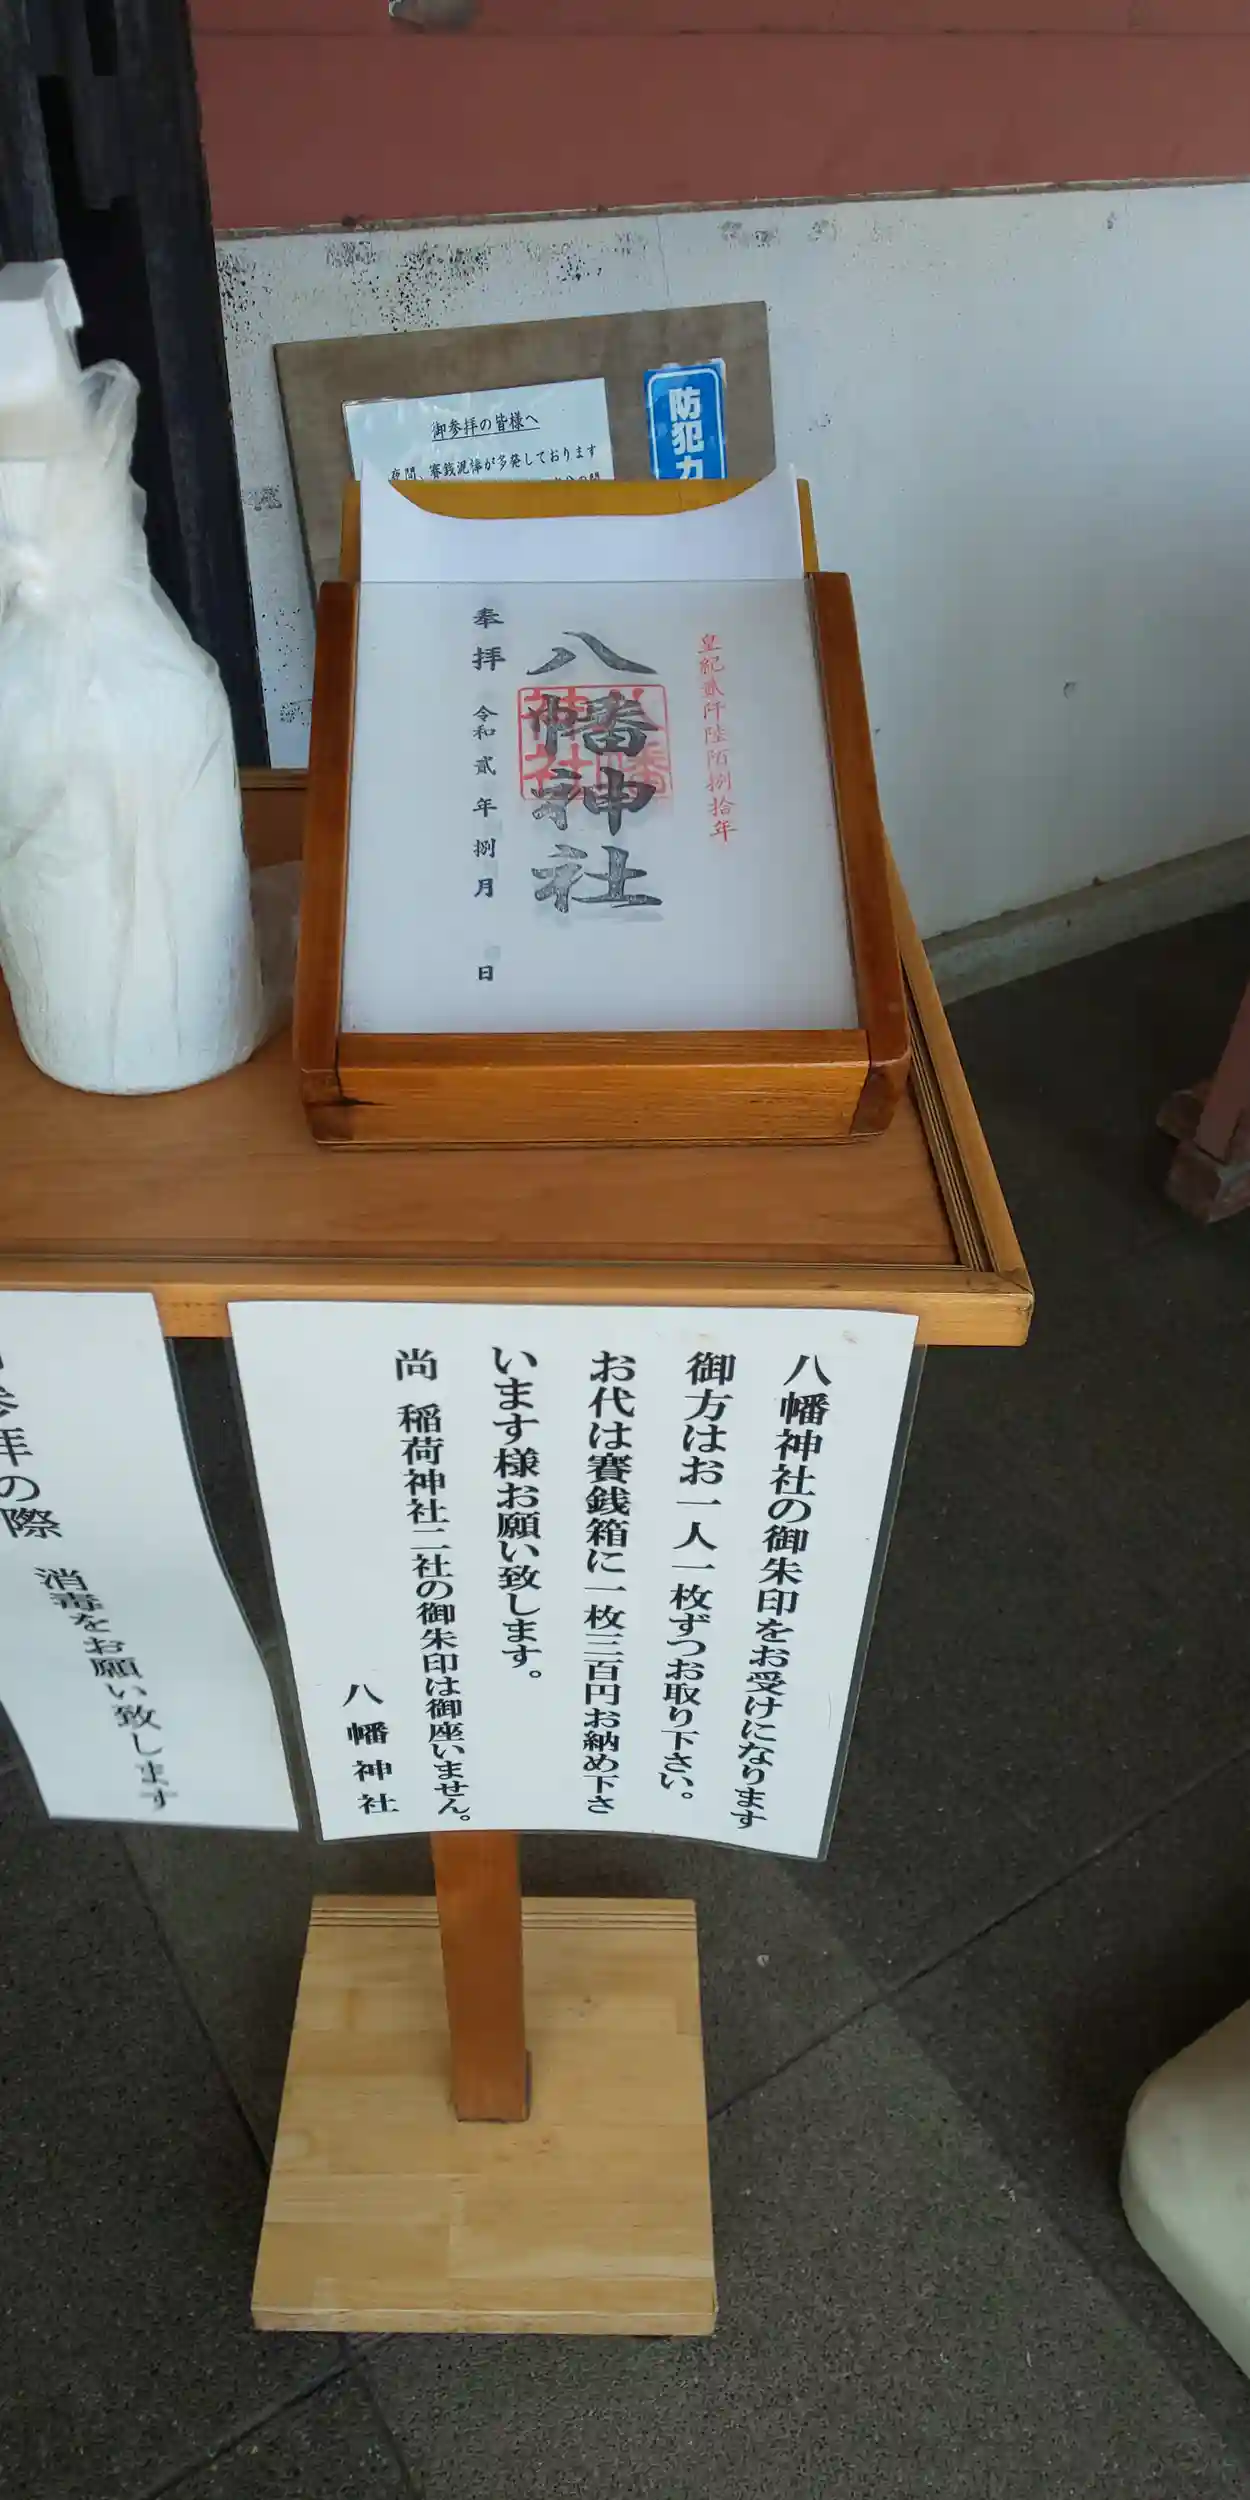 御参拝の皆様へ
夜間、賽銭泥棒が多発しております
防犯カ
皇紀貳阡陸陌捌拾年
八幡神社
八幡神社
奉拝 令和貳年捌月 日
八幡神社の御朱印をお受けになります
御方はお一人一枚ずつお取り下さい。
お代は賽銭箱に一枚三百円お納め下さ
います様お願い致します。
尚 稲荷神社二社の御朱印は御座いません。
八幡神社
参拝の際
消毒をお願い致します